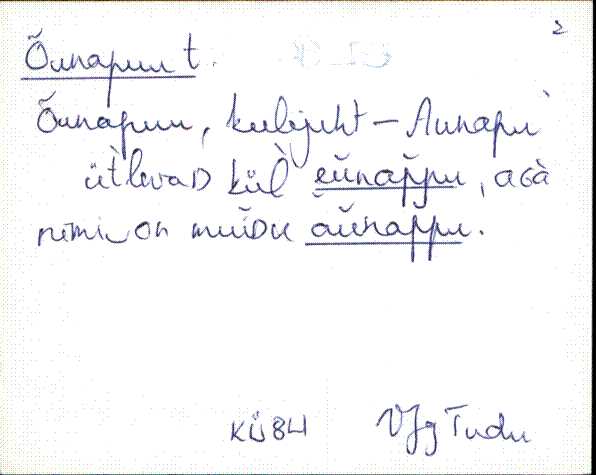 2
Õunapuu t.
Õunapuu, kulijuht – Aunapù
ùt̀levaD kül̀ eŭnap̆pu, aGà
nimi on muĭDu ăŭnap̆pu.
KÜ84 VJg Tudu